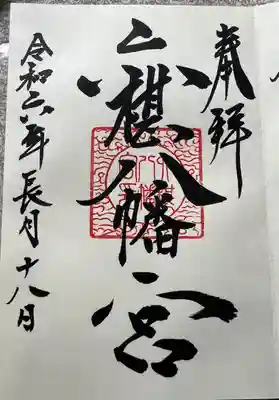 奉拝
六椹八幡宮
令和六年長月十八日